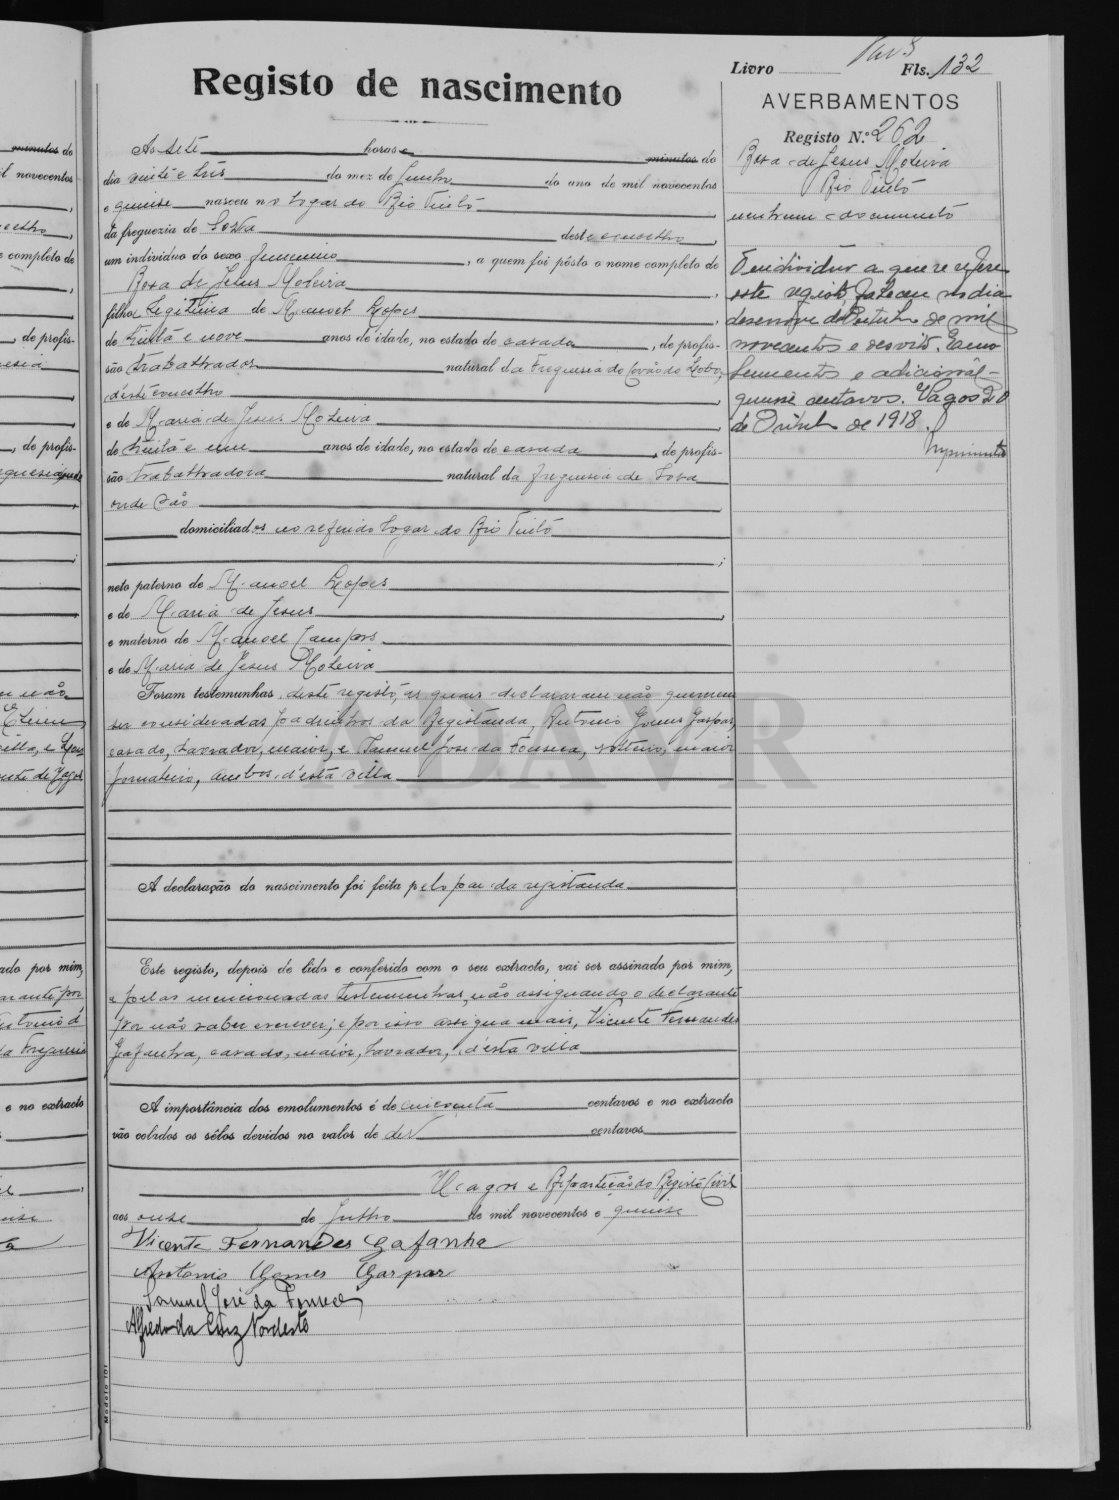 Livro Fls. 132
Registo de nascimento
AVERBAMENTOS
Registo N.º 262
Rosa de Jesus Moteira
Rio Tinto
nenhum documento
O individuo a que se refere
este registo, faleceu no dia
desenove de Outubro de mil
novecentos e desoito. Emo
lumentos e adicional -
quinse centavos. Vagos 20
de Outub de 1918.
Ás sete horas e minutos do
dia vinte e três do mez de Junho do ano de mil novecentos
e quinse nasceu no logar do Rio Tinto,
da freguezia de Soza deste concelho,
um individuo do sexo feminino, a quem foi pôsto o nome completo de
Rosa de Jesus Moteira,
filha Legitima de Manoel Lopes
de trinta e nove anos de idade, no estado de casado, de profis-
são trabalhador natural da Freguesia do Covão do Lobo,
d'este concelho,
e de Maria de Jesus Moteira,
de trinta e um anos de idade, no estado de casada, de profis-
são trabalhadora natural da freguesia de Soza
onde são,
domiciliados no referido logar do Rio Tinto
;
neto paterno de Manoel Lopes
e de Maria de Jesus,
e materno de Manoel
e de Maria de Jesus Moteira
Foram testemunhas, deste registo, as quais declararam não quererem
ser consideradas padrinhos da Registanda, Antonio Gomes Gaspar,
casado, lavrador, maior, e Samuel José da Fonseca, solteiro, maior
jornaleiro, ambos d'esta villa
A declaração do nascimento foi feita pelo pae da registanda
Este registo, depois de lido e conferido com o seu extracto, vai ser assinado por mim,
e pelas mencionadas testemunhas, não assignando o declarante
por não saber escrever; e por isso assigna mais, Vicente Fernandes
Gafanha, casado, maior, lavrador, d'esta villa
A importância dos emolumentos é de cincoenta centavos e no extracto
vão colados os sêlos devidos no valor de dez centavos
Vagos e Repartição do Registo Civil
aos onse de Julho de mil novecentos e quinse
Vicente Fernandes Gafanha
Antonio Gomes Gaspar
Samuel José da Fonseca
Alfredo da Cruz Nordeste
Modelo 101
ADAVR
minutos do
il novecentos
e completo de
, de profis-
, de profis-
ado por mim,
e no extracto